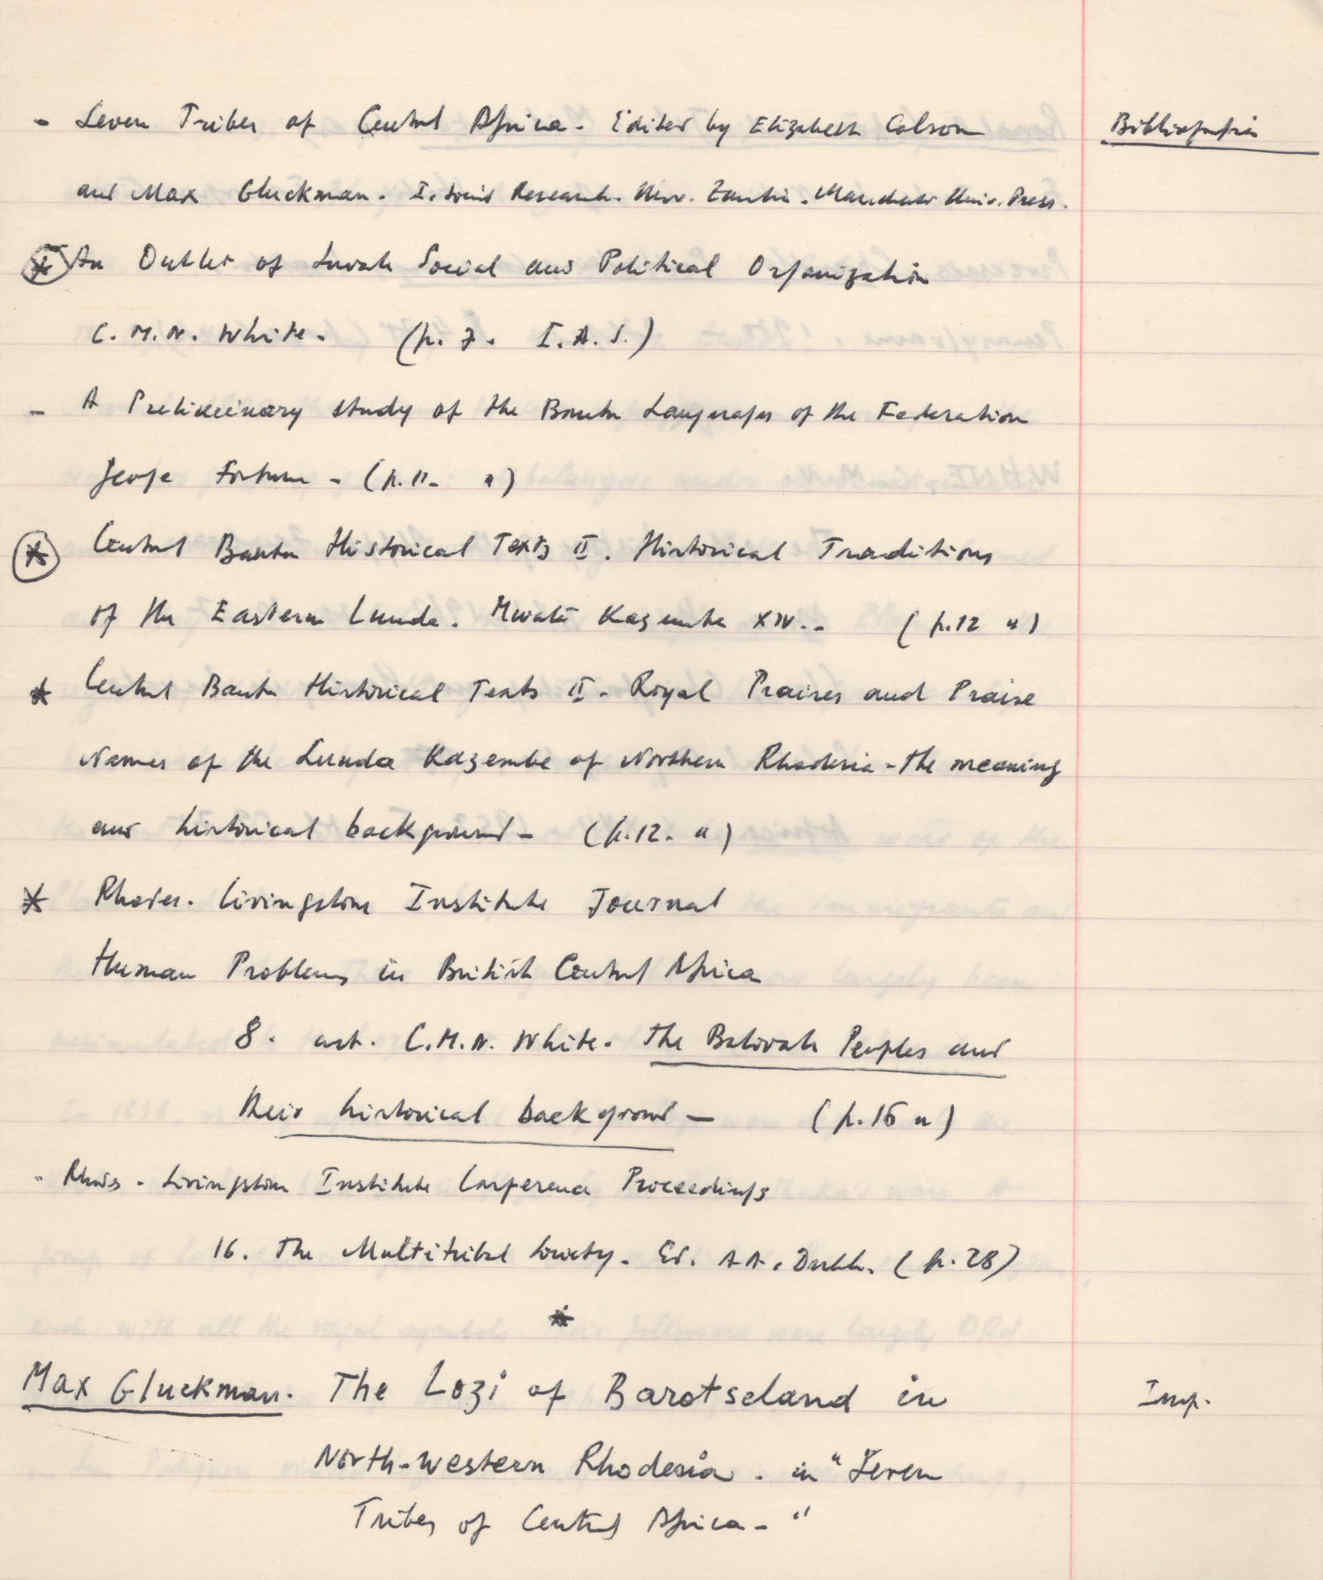 - Seven Tribes of Central Africa - Edited by Elizabeth Colson
Bibliografia
and Max Gluckman - I. Social Research. Univ. Zambia - Manchester Univ. Press.
An Outline of Luvale Social and Political Organization
C.M.N. White - (p. 7. I.A.S.)
- A Preliminary study of the Bantu Languages of the Federation
George Fortune - (p. 11 - ")
* Central Bantu Historical Texts II. Historical Traditions
of the Eastern Lunda. Mwata Kazembe XIV. - (p. 12 ")
* Central Bantu Historical Texts II - Royal Praises and Praise
Names of the Lunda Kazembe of Northern Rhodesia - the meaning
and historical background - (p. 12. ")
* Rhodes. Livingstone Institute Journal
Human Problems in British Central Africa
8. art. C.M.N. White. The Balovale Peoples and
their historical background - (p. 16 ")
- Rhodes - Livingstone Institute Conference Proceedings
16. The Multitribal Society - Ed. A.A. (p. 28)
*
Max Gluckman. The Lozi of Barotseland in
Imp.
North-western Rhodesia. in "Seven
Tribes of Central Africa - "